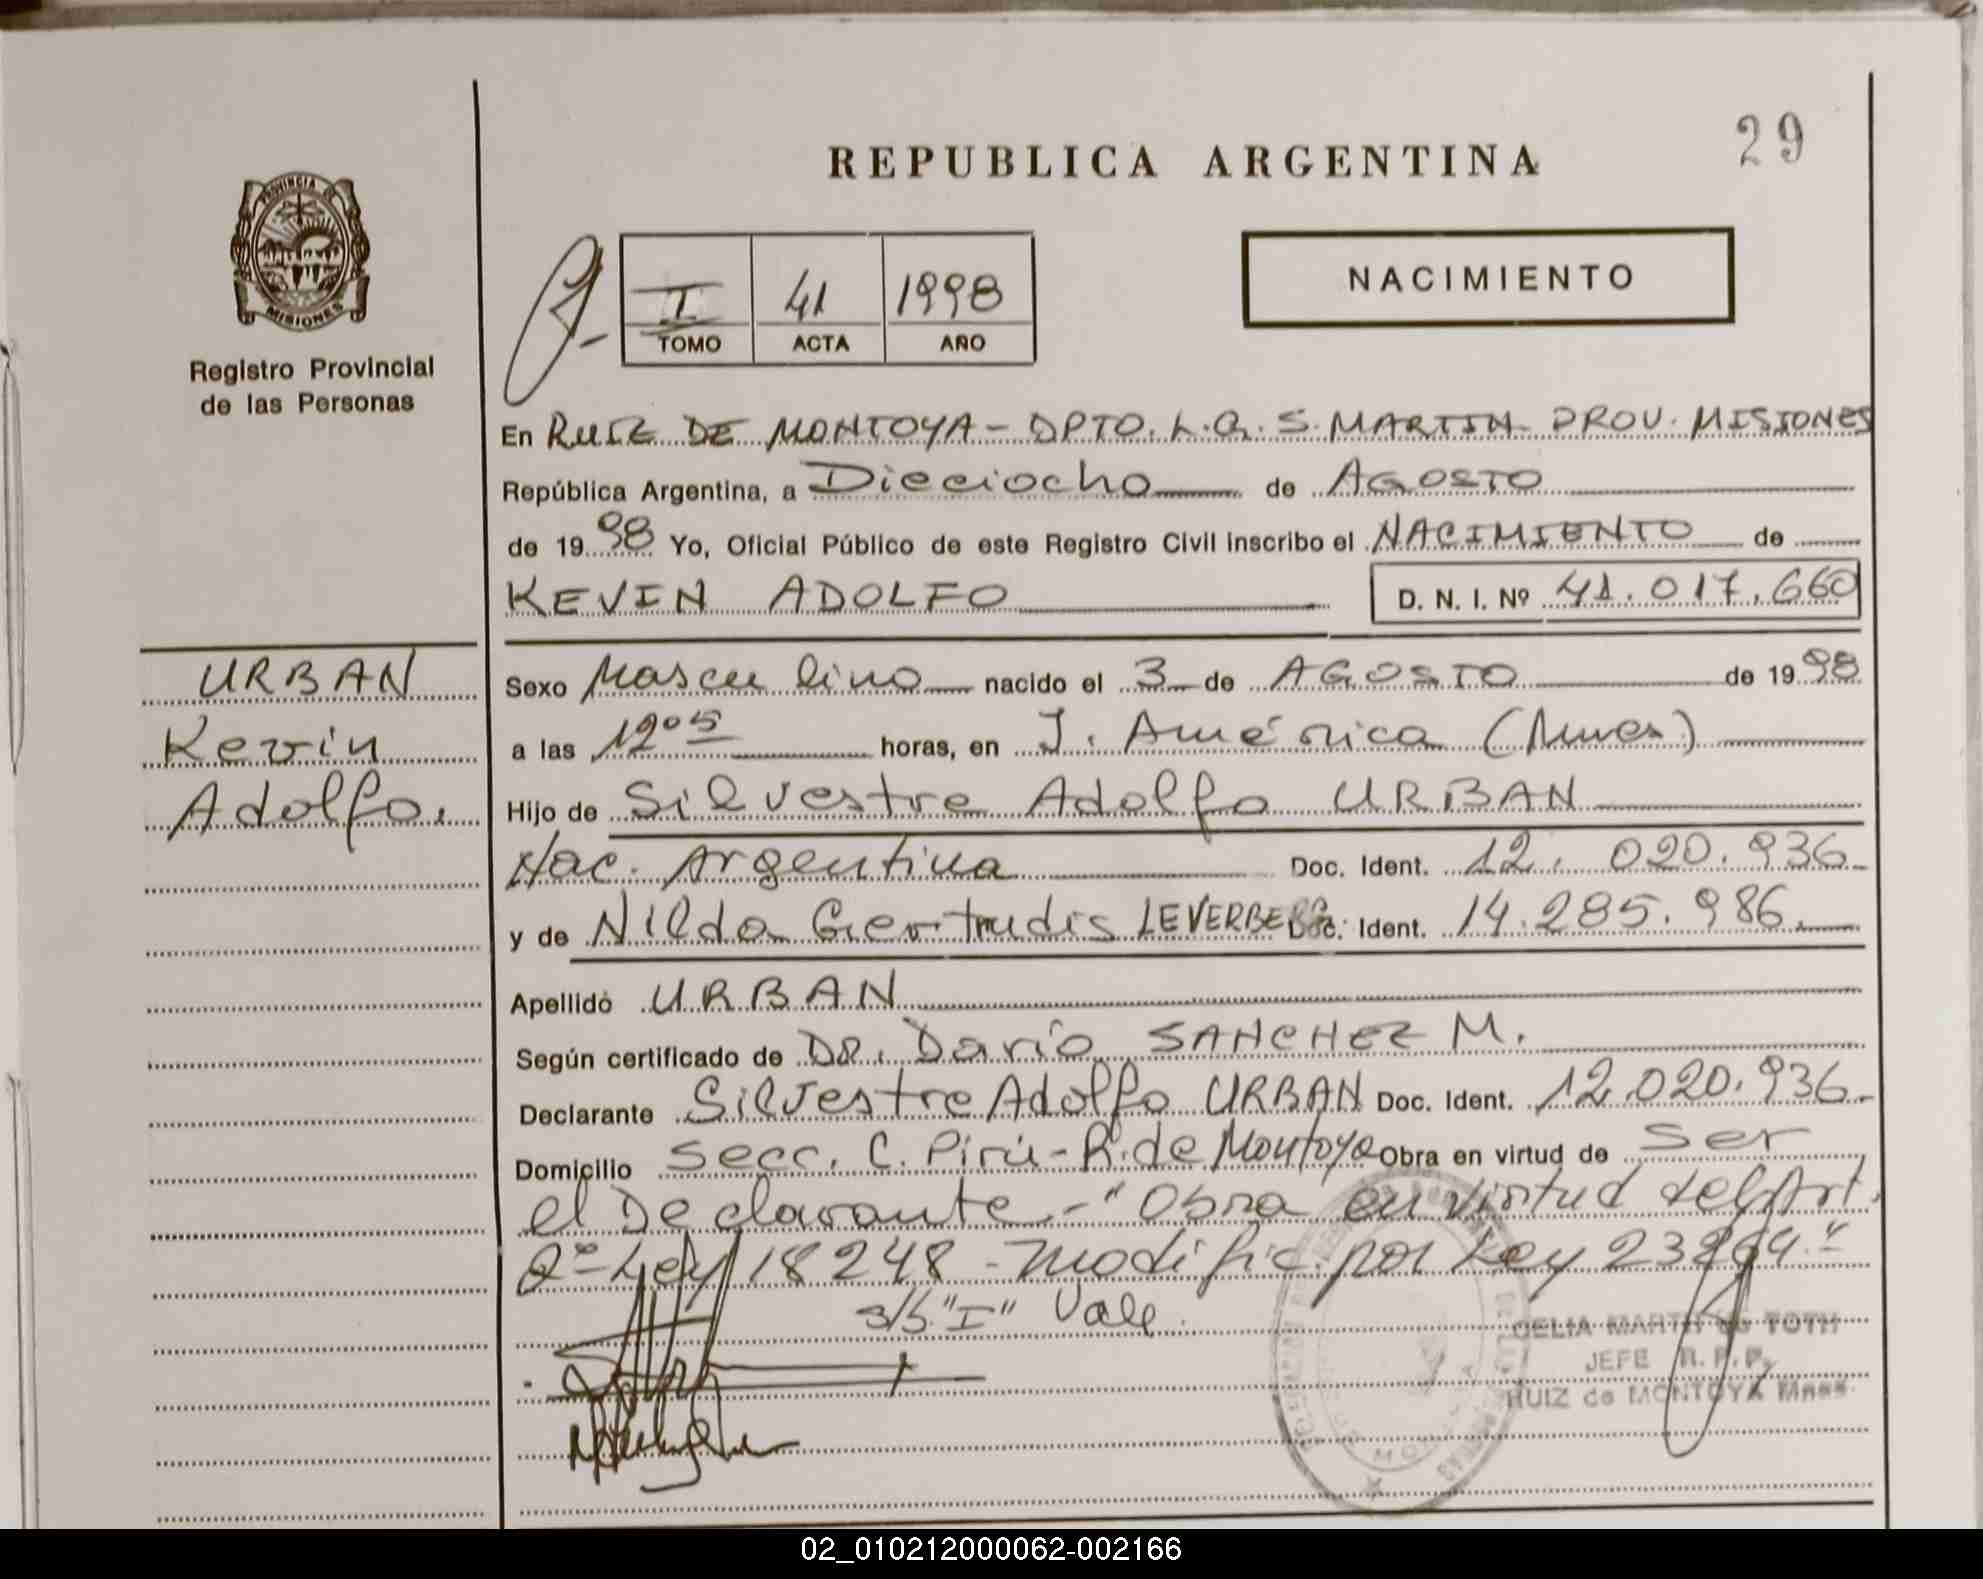 29
REPUBLICA ARGENTINA
PROVINCIA DE
MISIONES
Registro Provincial
de las Personas
I 41 1998
TOMO ACTA AÑO
NACIMIENTO
En RUIZ DE MONTOYA - DPTO. L.G. S. MARTIN PROV. MISIONES
República Argentina, a Dieciocho de AGOSTO
de 1998 Yo, Oficial Público de este Registro Civil inscribo el NACIMIENTO de
KEVIN ADOLFO D. N. I. Nº 41.017.660
URBAN
Kevin
Adolfo.
Sexo Masculino nacido el 3 de AGOSTO de 1998
a las 12 05 horas, en J. América (Mnes)
Hijo de Silvestre Adolfo URBAN
Nac. Argentina Doc. Ident. 12.020.936
y de Nilda Gertrudis LEVERBERG Doc. Ident. 14.285.986.
Apellido URBAN
Según certificado de DR. Darío SANCHEZ M.
Declarante Silvestre Adolfo URBAN Doc. Ident. 12.020.936.
Domicilio Secc. C. Pirú - R. de Montoya Obra en virtud de Ser
el Declarante - "Obra en virtud del Art.
2º Ley 18248 - modific. por Ley 23264."
s/b "I" Vale
CELIA MARTIN de TOTH
JEFE R. P. P.
RUIZ de MONTOYA Mnes.
02_010212000062-002166